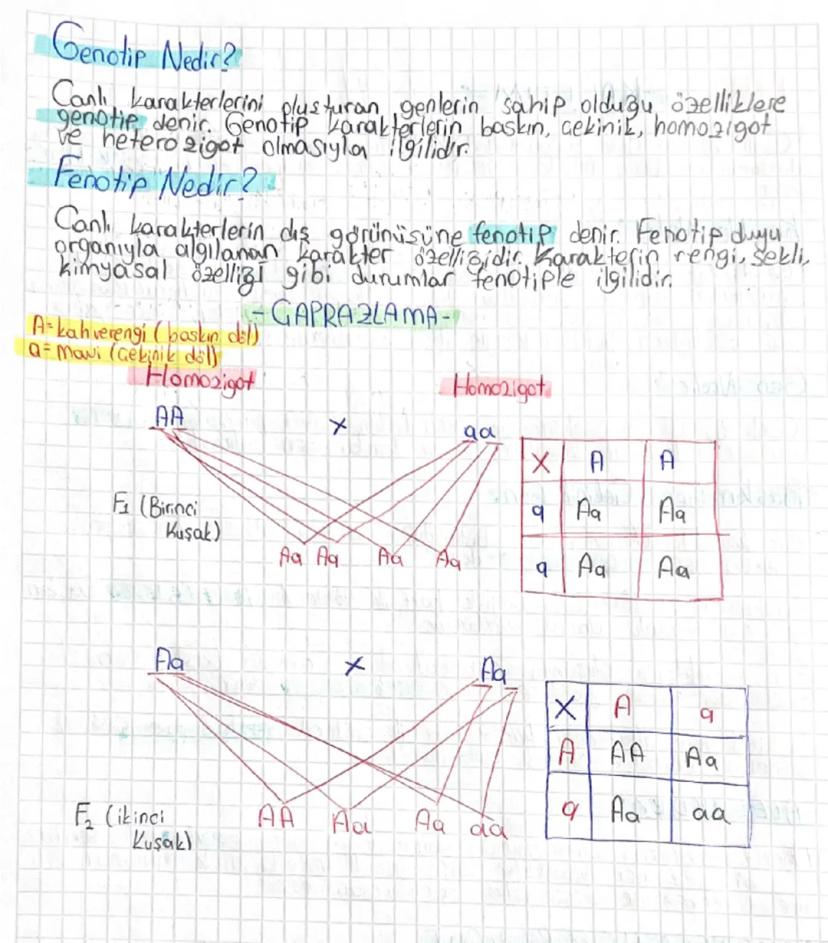 Genotip Nedir?
Canlı karakterlerini oluşturan genlerin sahip olduğu özelliklere
genotip denir. Genotip karakterlerin baskın, çekinik, homozigot
ve heterozigot olmasıyla ilgilidir.
Fenotip Nedir?
Canlı karakterlerin dış görünüşüne fenotip denir. Fenotip duyu
organıyla algılanan karakter özelliğidir. Karakterin rengi, şekli,
kimyasal özelliği gibi durumlar fenotiple ilgilidir.
-ÇAPRAZLAMA-
A=kahverengi (baskın döl)
a=mavi (çekinik döl)
Homozigot Homozigot
AA x aa
X A A
a Aa Aa
a Aa Aa
F1 (Birinci
Kuşak)
Aa Aa Aa Aa
Aa x Aa
X A a
A AA Aa
a Aa aa
F2 (ikinci
Kuşak)
AA Aa Aa aa